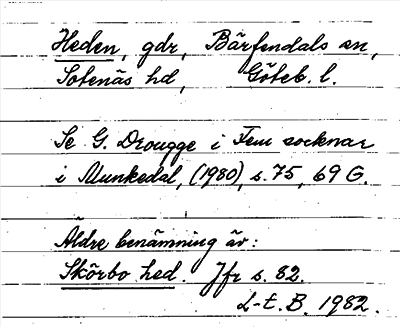 Heden, gdr, Bärfendals sn,
Sotenäs hd, Göteb. l.
Se G. Drougge i Fem socknar
i Munkedal, (1980), s. 75, 69 G.
Äldre benämning är:
Skörbo hed. Jfr s. 82.
L-t. B. 1982.